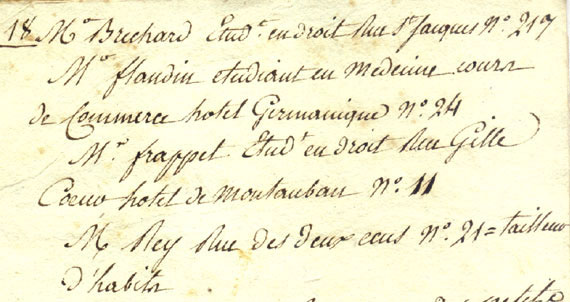 18 Mr Brichard Etudt en droit Rue St Jacques No. 217
Mr flandin etudiant en Medecine cours
de Commerce hotel Germanique No. 24
Mr frappet Etudt en droit Rue Gille
Coeur hotel de Montauban No. 11
M Rey Rue des deux ecus No. 21 = tailleur
d'habits